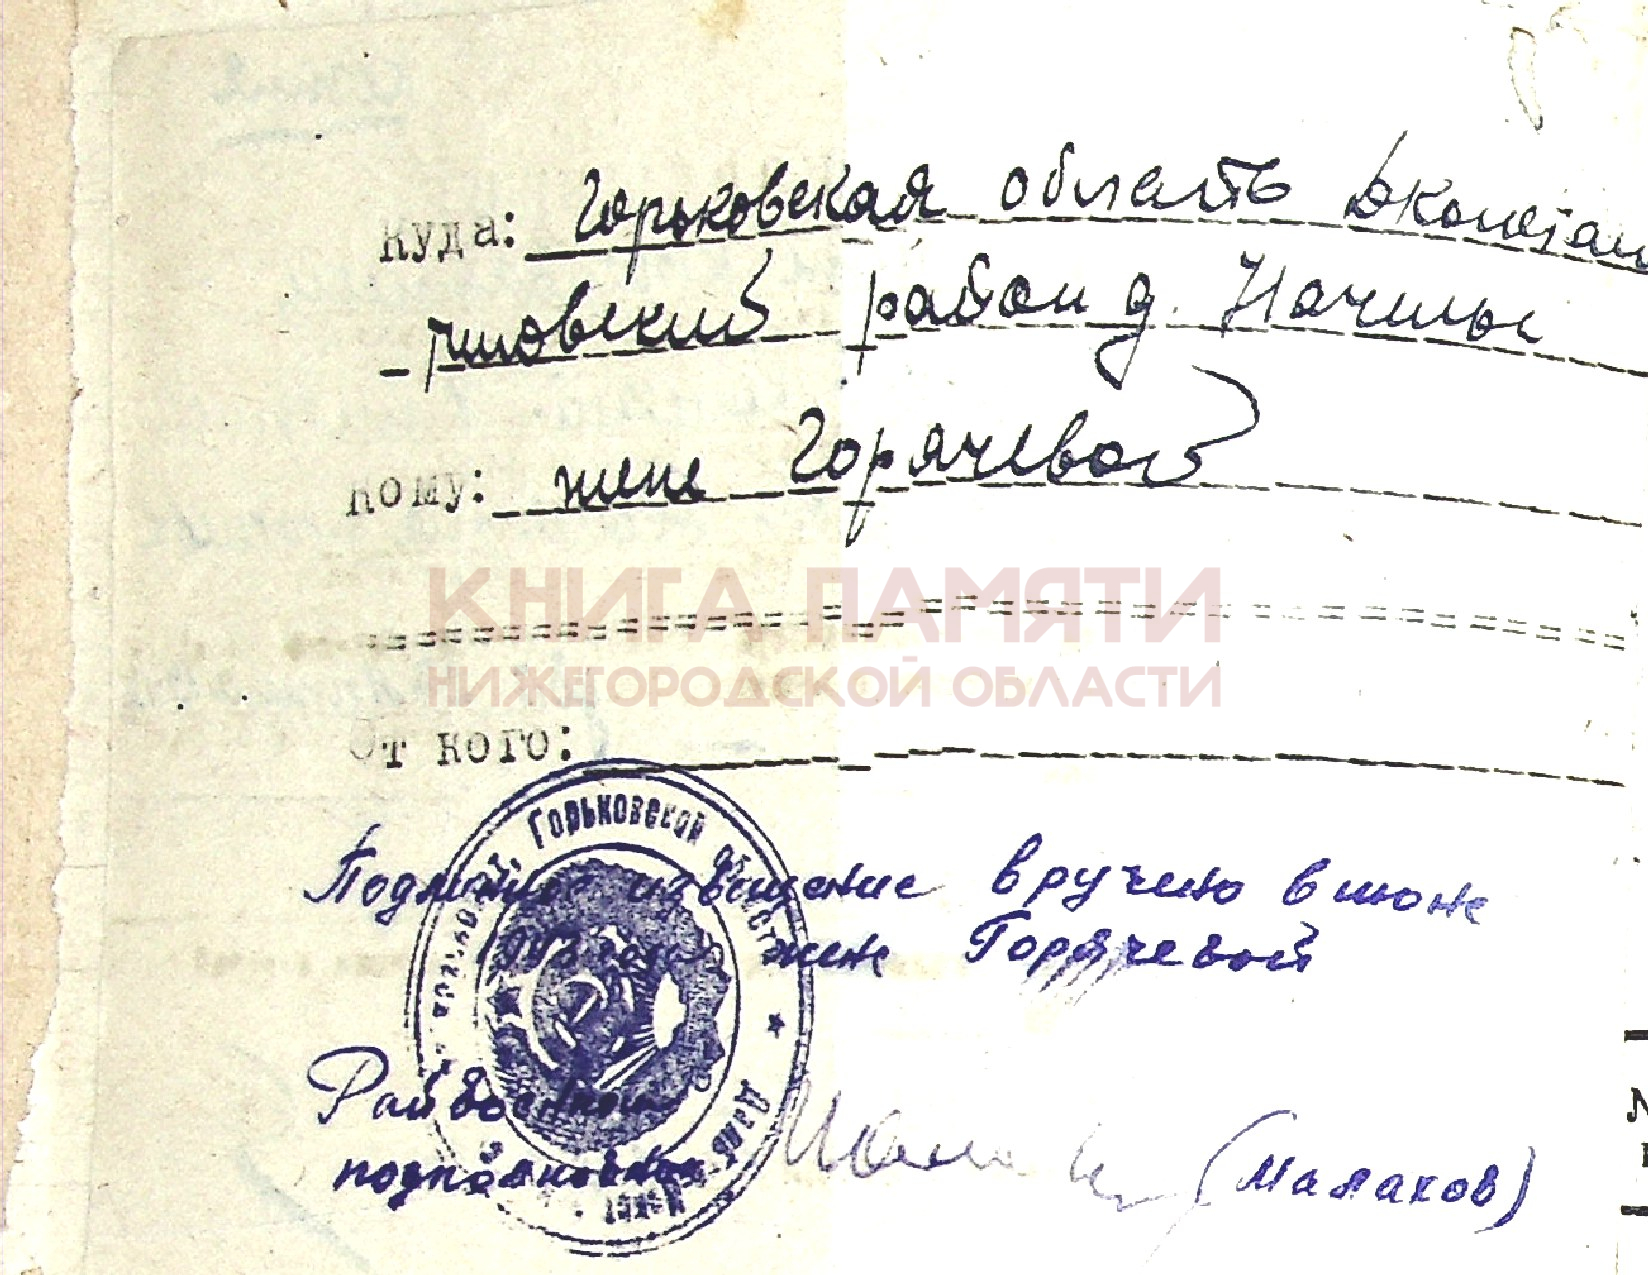 Куда: Горьковская область
район д.
Кому: жене Горячевой
КНИГА ПАМЯТИ
НИЖЕГОРОДСКОЙ ОБЛАСТИ
От кого:
Подлинное извещение вручено в июне
1943 года жене Горячевой
Горьковской области
Райвоенком
подполковник (Малахов)